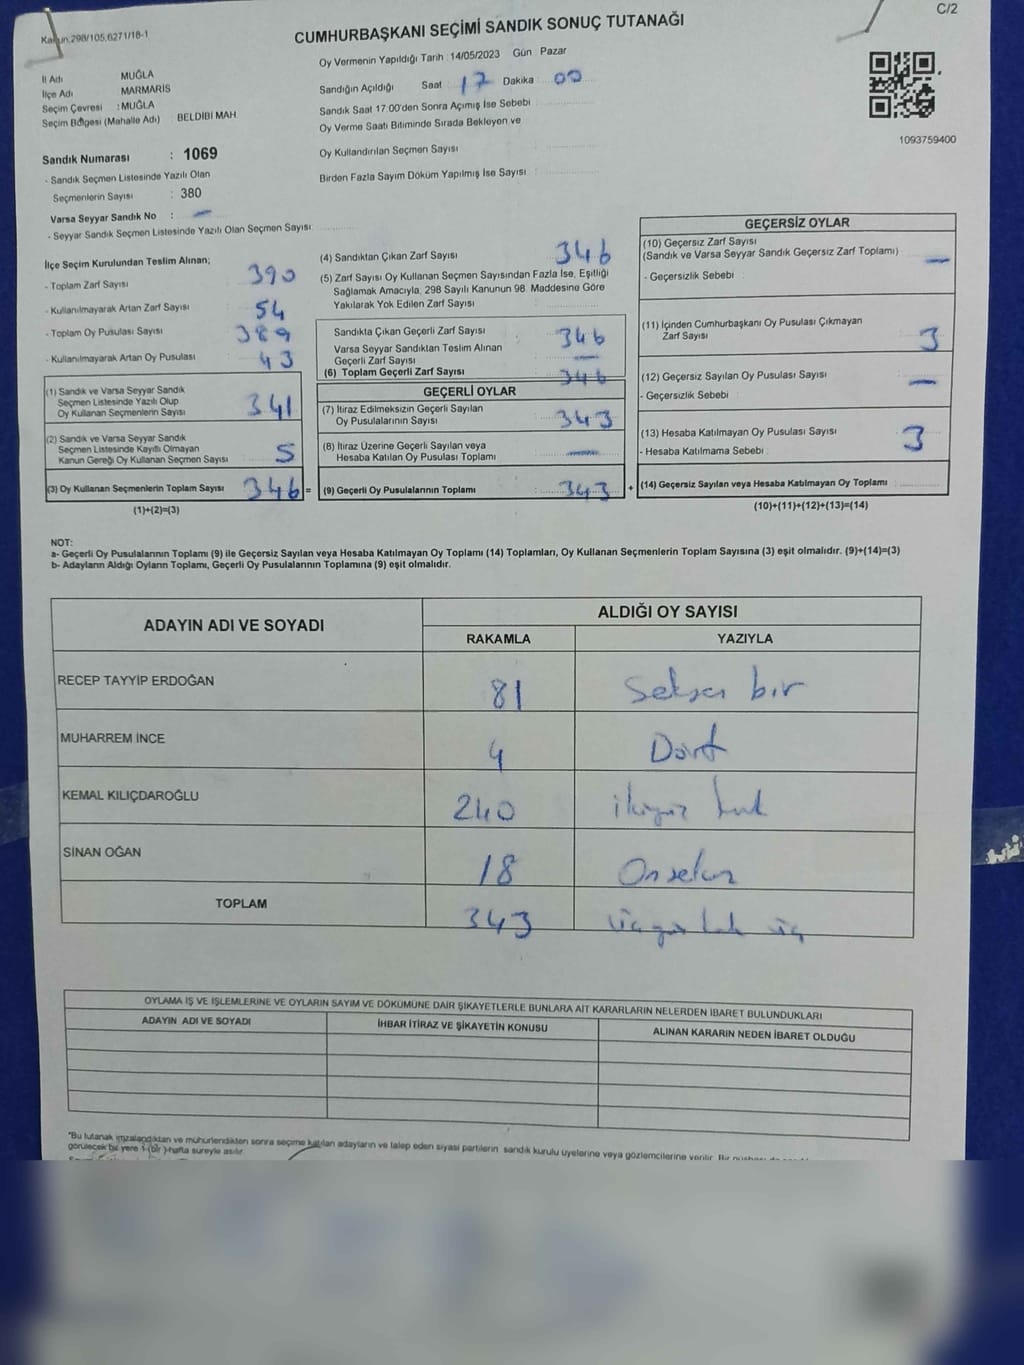 Kanun:298/105,6271/18-1
C/2
CUMHURBAŞKANI SEÇİMİ SANDIK SONUÇ TUTANAĞI
İl Adı MUĞLA
İlçe Adı MARMARİS
Seçim Çevresi : MUĞLA
Seçim Bölgesi (Mahalle Adı) BELDİBİ MAH.
Sandık Numarası : 1069
- Sandık Seçmen Listesinde Yazılı Olan
Seçmenlerin Sayısı : 380
Varsa Seyyar Sandık No : –
- Seyyar Sandık Seçmen Listesinde Yazılı Olan Seçmen Sayısı:
Oy Vermenin Yapıldığı Tarih : 14/05/2023 Gün : Pazar
Sandığın Açıldığı Saat : 17 Dakika : 00
Sandık Saat 17:00'den Sonra Açımış İse Sebebi :
Oy Verme Saati Bitiminde Sırada Bekleyen ve
Oy Kullandırılan Seçmen Sayısı :
Birden Fazla Sayım Döküm Yapılmış İse Sayısı :
1093759400
İlçe Seçim Kurulundan Teslim Alınan;
- Toplam Zarf Sayısı 390
- Kullanılmayarak Artan Zarf Sayısı 54
- Toplam Oy Pusulası Sayısı 389
- Kullanılmayarak Artan Oy Pusulası 43
(1) Sandık ve Varsa Seyyar Sandık
Seçmen Listesinde Yazılı Olup
Oy Kullanan Seçmenlerin Sayısı 341
(2) Sandık ve Varsa Seyyar Sandık
Seçmen Listesinde Kayıtlı Olmayan
Kanun Gereği Oy Kullanan Seçmen Sayısı 5
(3) Oy Kullanan Seçmenlerin Toplam Sayısı 346 =
(1)+(2)=(3)
(4) Sandıktan Çıkan Zarf Sayısı : 346
(5) Zarf Sayısı Oy Kullanan Seçmen Sayısından Fazla İse, Eşitliği
Sağlamak Amacıyla, 298 Sayılı Kanunun 98. Maddesine Göre
Yakılarak Yok Edilen Zarf Sayısı :
Sandıkta Çıkan Geçerli Zarf Sayısı : 346
Varsa Seyyar Sandıktan Teslim Alınan
Geçerli Zarf Sayısı : –
(6) Toplam Geçerli Zarf Sayısı : 346
GEÇERLİ OYLAR
(7) İtiraz Edilmeksizin Geçerli Sayılan
Oy Pusulalarının Sayısı : 343
(8) İtiraz Üzerine Geçerli Sayılan veya
Hesaba Katılan Oy Pusulası Toplamı : –
(9) Geçerli Oy Pusulalarının Toplamı : 343 +
GEÇERSİZ OYLAR
(10) Geçersiz Zarf Sayısı
(Sandık ve Varsa Seyyar Sandık Geçersiz Zarf Toplamı) : –
- Geçersizlik Sebebi :
(11) İçinden Cumhurbaşkanı Oy Pusulası Çıkmayan
Zarf Sayısı : 3
(12) Geçersiz Sayılan Oy Pusulası Sayısı : –
- Geçersizlik Sebebi :
(13) Hesaba Katılmayan Oy Pusulası Sayısı : 3
- Hesaba Katılmama Sebebi :
(14) Geçersiz Sayılan veya Hesaba Katılmayan Oy Toplamı :
(10)+(11)+(12)+(13)=(14)
NOT:
a- Geçerli Oy Pusulalarının Toplamı (9) ile Geçersiz Sayılan veya Hesaba Katılmayan Oy Toplamı (14) Toplamları, Oy Kullanan Seçmenlerin Toplam Sayısına (3) eşit olmalıdır. (9)+(14)=(3)
b- Adayların Aldığı Oyların Toplamı, Geçerli Oy Pusulalarının Toplamına (9) eşit olmalıdır.
ADAYIN ADI VE SOYADI
ALDIĞI OY SAYISI
RAKAMLA YAZIYLA
RECEP TAYYİP ERDOĞAN 81 Seksen bir
MUHARREM İNCE 4 Dört
KEMAL KILIÇDAROĞLU 240 ikiyüz kırk
SİNAN OĞAN 18 Onsekiz
TOPLAM 343 üçyüz kırk üç
OYLAMA İŞ VE İŞLEMLERİNE VE OYLARIN SAYIM VE DÖKÜMÜNE DAİR ŞİKAYETLERLE BUNLARA AİT KARARLARIN NELERDEN İBARET BULUNDUKLARI
ADAYIN ADI VE SOYADI İHBAR İTİRAZ VE ŞİKAYETİN KONUSU ALINAN KARARIN NEDEN İBARET OLDUĞU
"Bu tutanak imzalandıktan ve mühürlendikten sonra seçime katılan adayların ve talep eden siyasi partilerin sandık kurulu üyelerine veya gözlemcilerine verilir. Bir
görülecek bir yere 1-(bir )-hafta süreyle asılır.